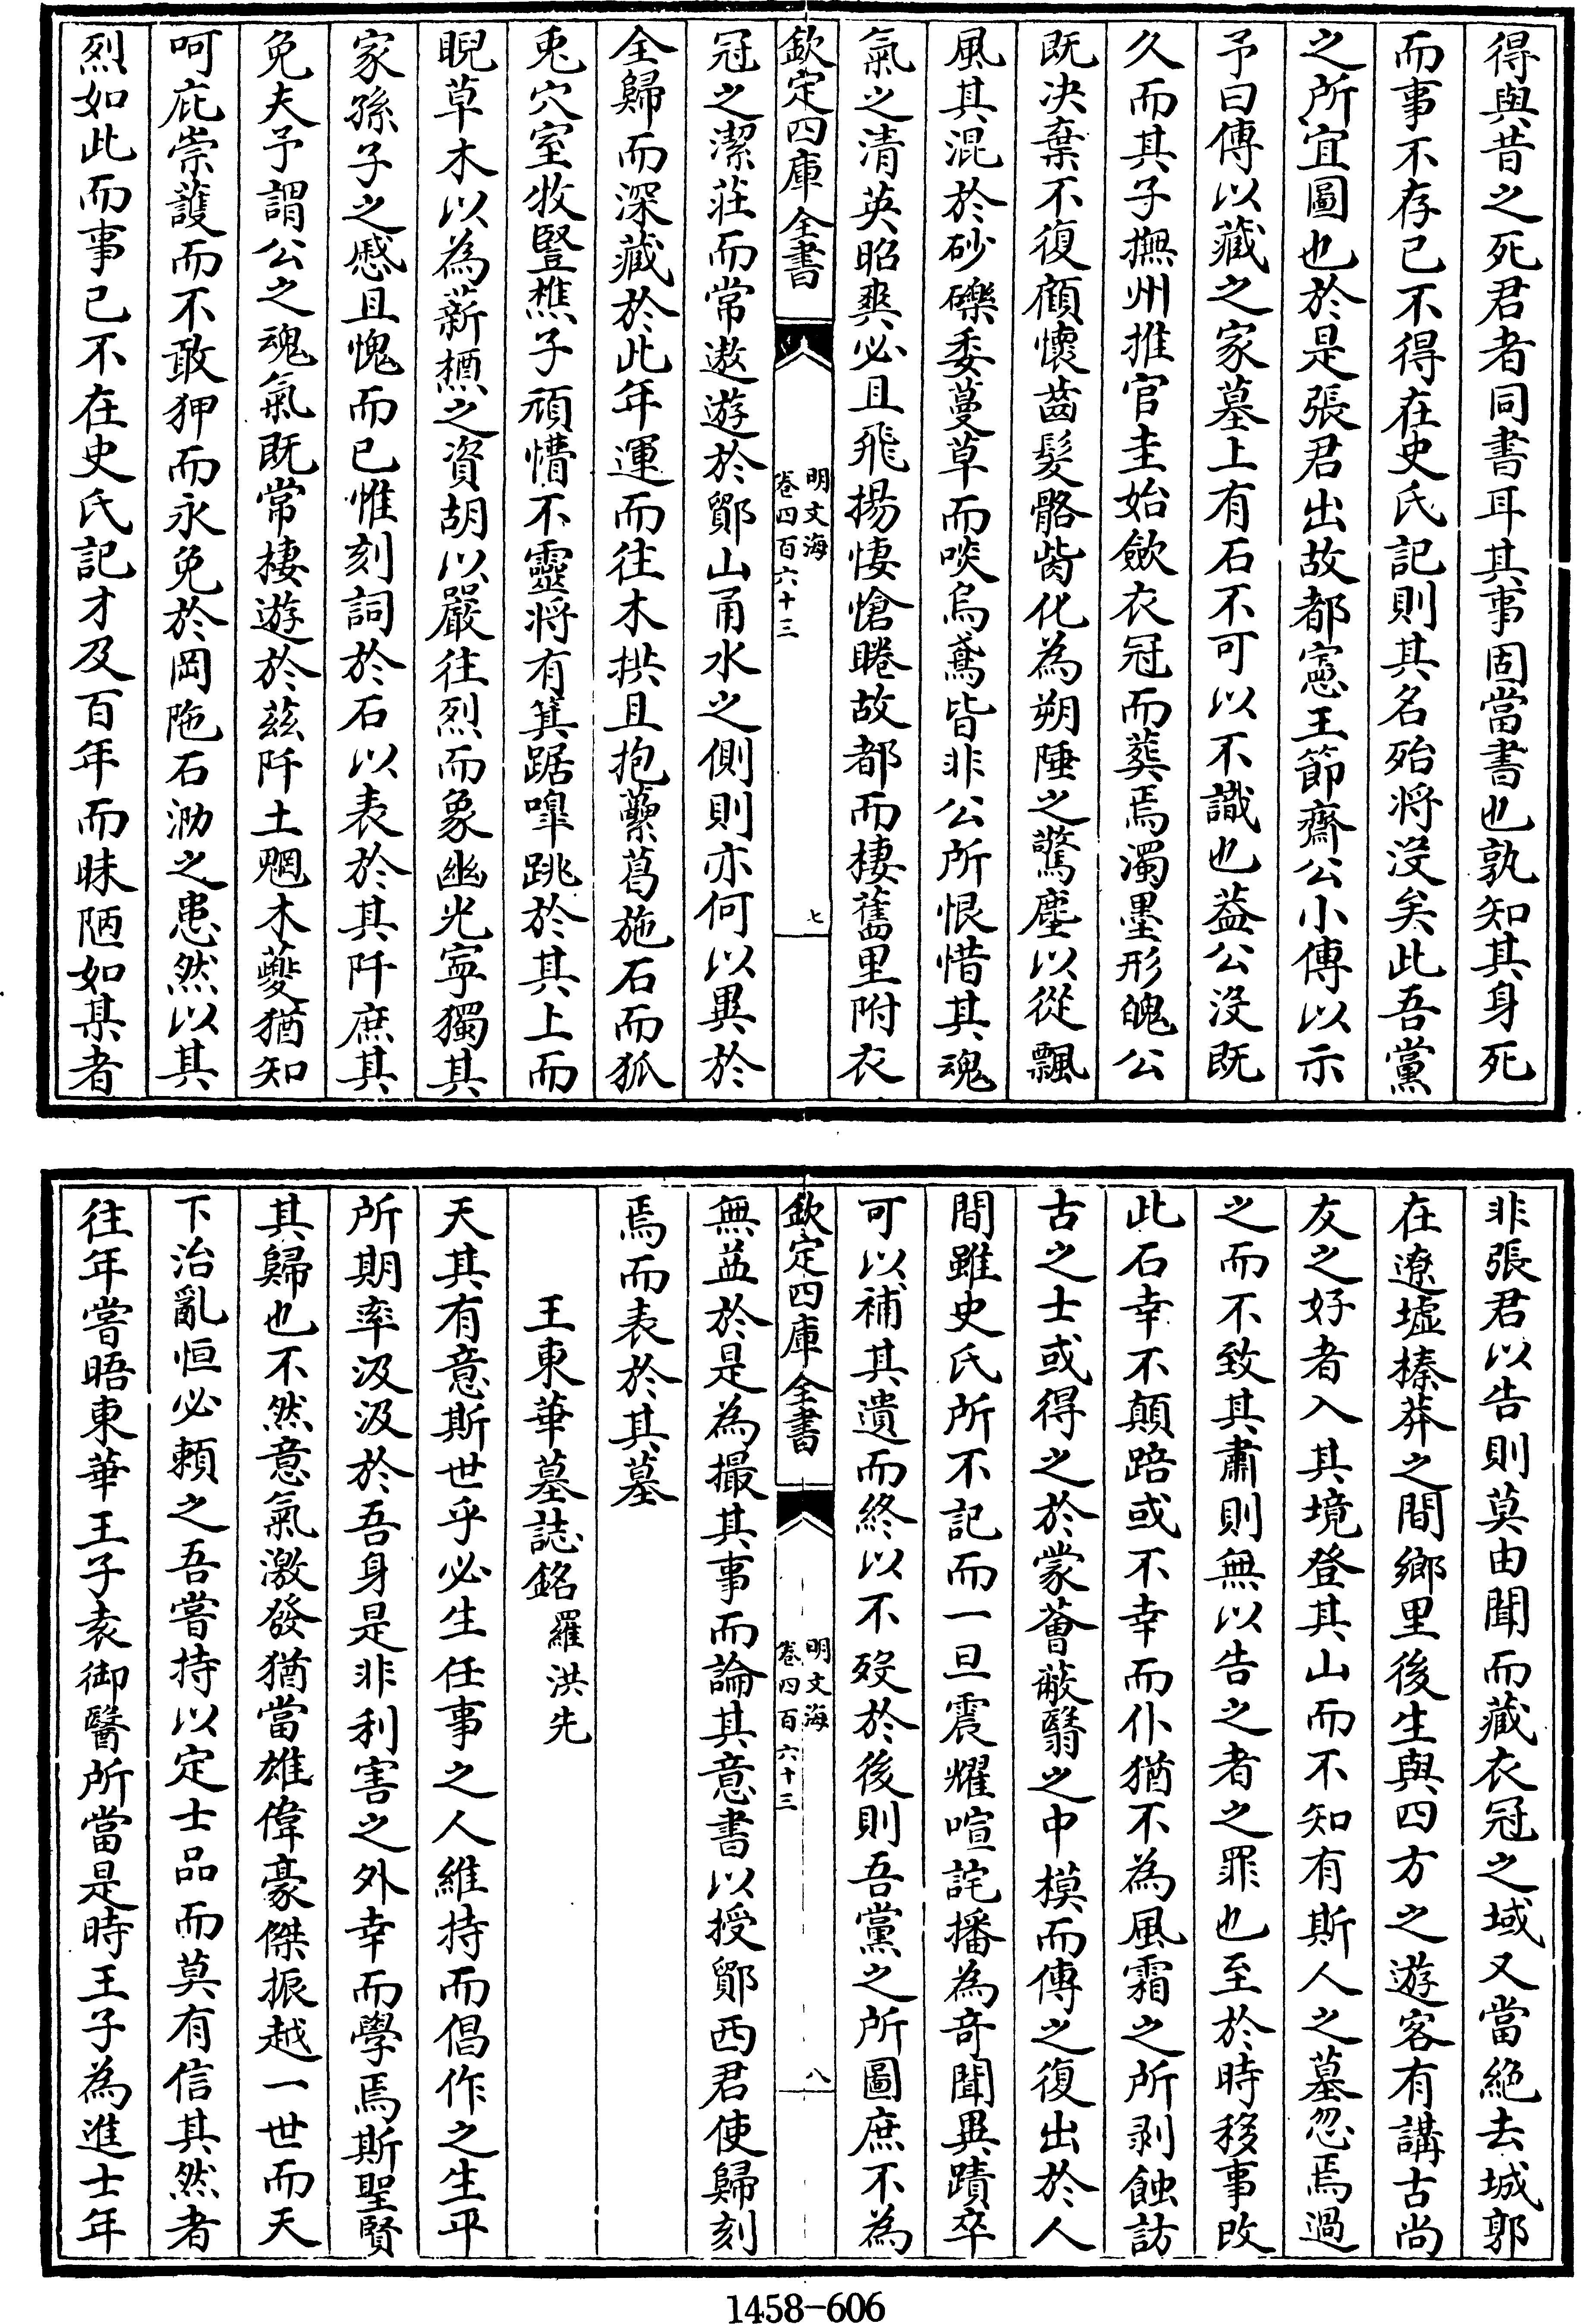 得與昔之死君者同書耳其事固當書也孰知其身死
而事不存已不得在史氏記則其名殆将沒矣此吾黨
之所宜圖也於是張君出故都憲王節齋公小傳以示
予曰傳以藏之家墓上有石不可以不識也葢公沒既
久而其子撫州推官圭始斂衣冠而葬焉濁墨形魄公
既决棄不復顧懷齒髮骼胔化為朔陲之驚塵以從飄
風其混於砂礫委蔓草而啖烏鳶皆非公所恨惜其魂
氣之清英昭爽必且飛揚悽愴睠故都而棲舊里附衣
欽定四庫全書
明文海
卷四百六十三
七
冠之潔莊而常遨遊於鄮山甬水之側則亦何以異於
全歸而深藏於此年運而往木拱且抱虆葛施石而狐
兎穴室牧豎樵子頑懵不靈将有箕踞嘷跳於其上而
睨草木以為薪槱之資胡以嚴往烈而象幽光寧獨其
家孫子之慼且愧而已惟刻詞於石以表於其阡庶其
免夫予謂公之魂氣既常棲遊於茲阡土魍木夔猶知
呵庇崇護而不敢狎而永免於岡陁石泐之患然以其
烈如此而事已不在史氏記才及百年而昧陋如某者
非張君以告則莫由聞而藏衣冠之域又當絶去城郭
在遼墟榛莽之間鄉里後生與四方之遊客有講古尚
友之好者入其境登其山而不知有斯人之墓忽焉過
之而不致其肅則無以告之者之罪也至於時移事改
此石幸不顛踣或不幸而仆猶不為風霜之所剥蝕訪
古之士或得之於蒙薈蔽翳之中模而傳之復出於人
間雖史氏所不記而一旦震耀喧詫播為竒聞異蹟卒
可以補其遺而終以不歿於後則吾黨之所圖庶不為
欽定四庫全書
明文海
卷四百六十三
八
無益於是為撮其事而論其意書以授鄮西君使歸刻
焉而表於其墓
王東華墓誌銘 羅洪先
天其有意斯世乎必生任事之人維持而倡作之生平
所期率汲汲於吾身是非利害之外幸而學焉斯聖賢
其歸也不然意氣激發猶當雄偉豪傑振越一世而天
下治亂恒必頼之吾嘗持以定士品而莫有信其然者
往年嘗晤東華王子衮御醫所當是時王子為進士年
1458-606